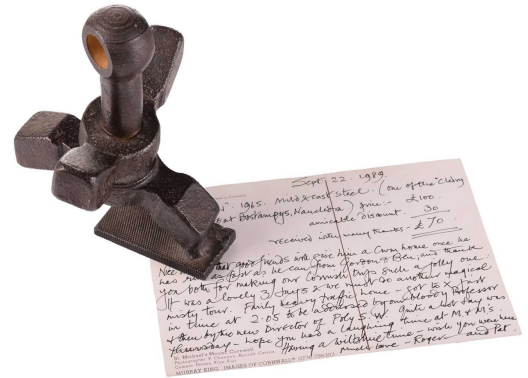 Sept 22. 1989
1965. Mild & cast steel. (one of the "Cherry
at Bostamgys, Nancledra) Price - £100.
amicable discount. 30
received with many thanks - £70
Nice that friends will give him a Cwm home once he
has as fast as he can from Gordon & Ben, and thank
you both for making our Cornish trip such a jolly one.
It was a lovely 3 days & we must do another magical
misty tour. Fairly heavy traffic home - got to X just
in time at 2.05 to be addressed by our bloody Professor
& then by the new Director of Poly S.W. Quite a hot day was
Thursday - hope you had a laughing time at M & M's.
Having a wiltshire time - wish you were here
Much Love - Roger and Pat.
St Michael's Mount Cornwall
MURRAY KING, IMAGES OF CORNWALL